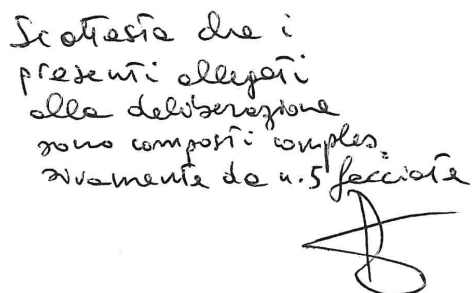 Si attesta che i
presenti allegati
alla deliberazione
sono composti comples_
sivamente da n. 5 facciate